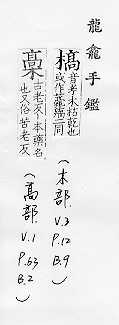 龍龕手鑑
槁 音考木枯乾也
或作䕩薧二同
(木部. V.3 P.12 B.9)
稾 古老反本藥名
也又俗苦老反
(高部. V.1 P.63 B.2)